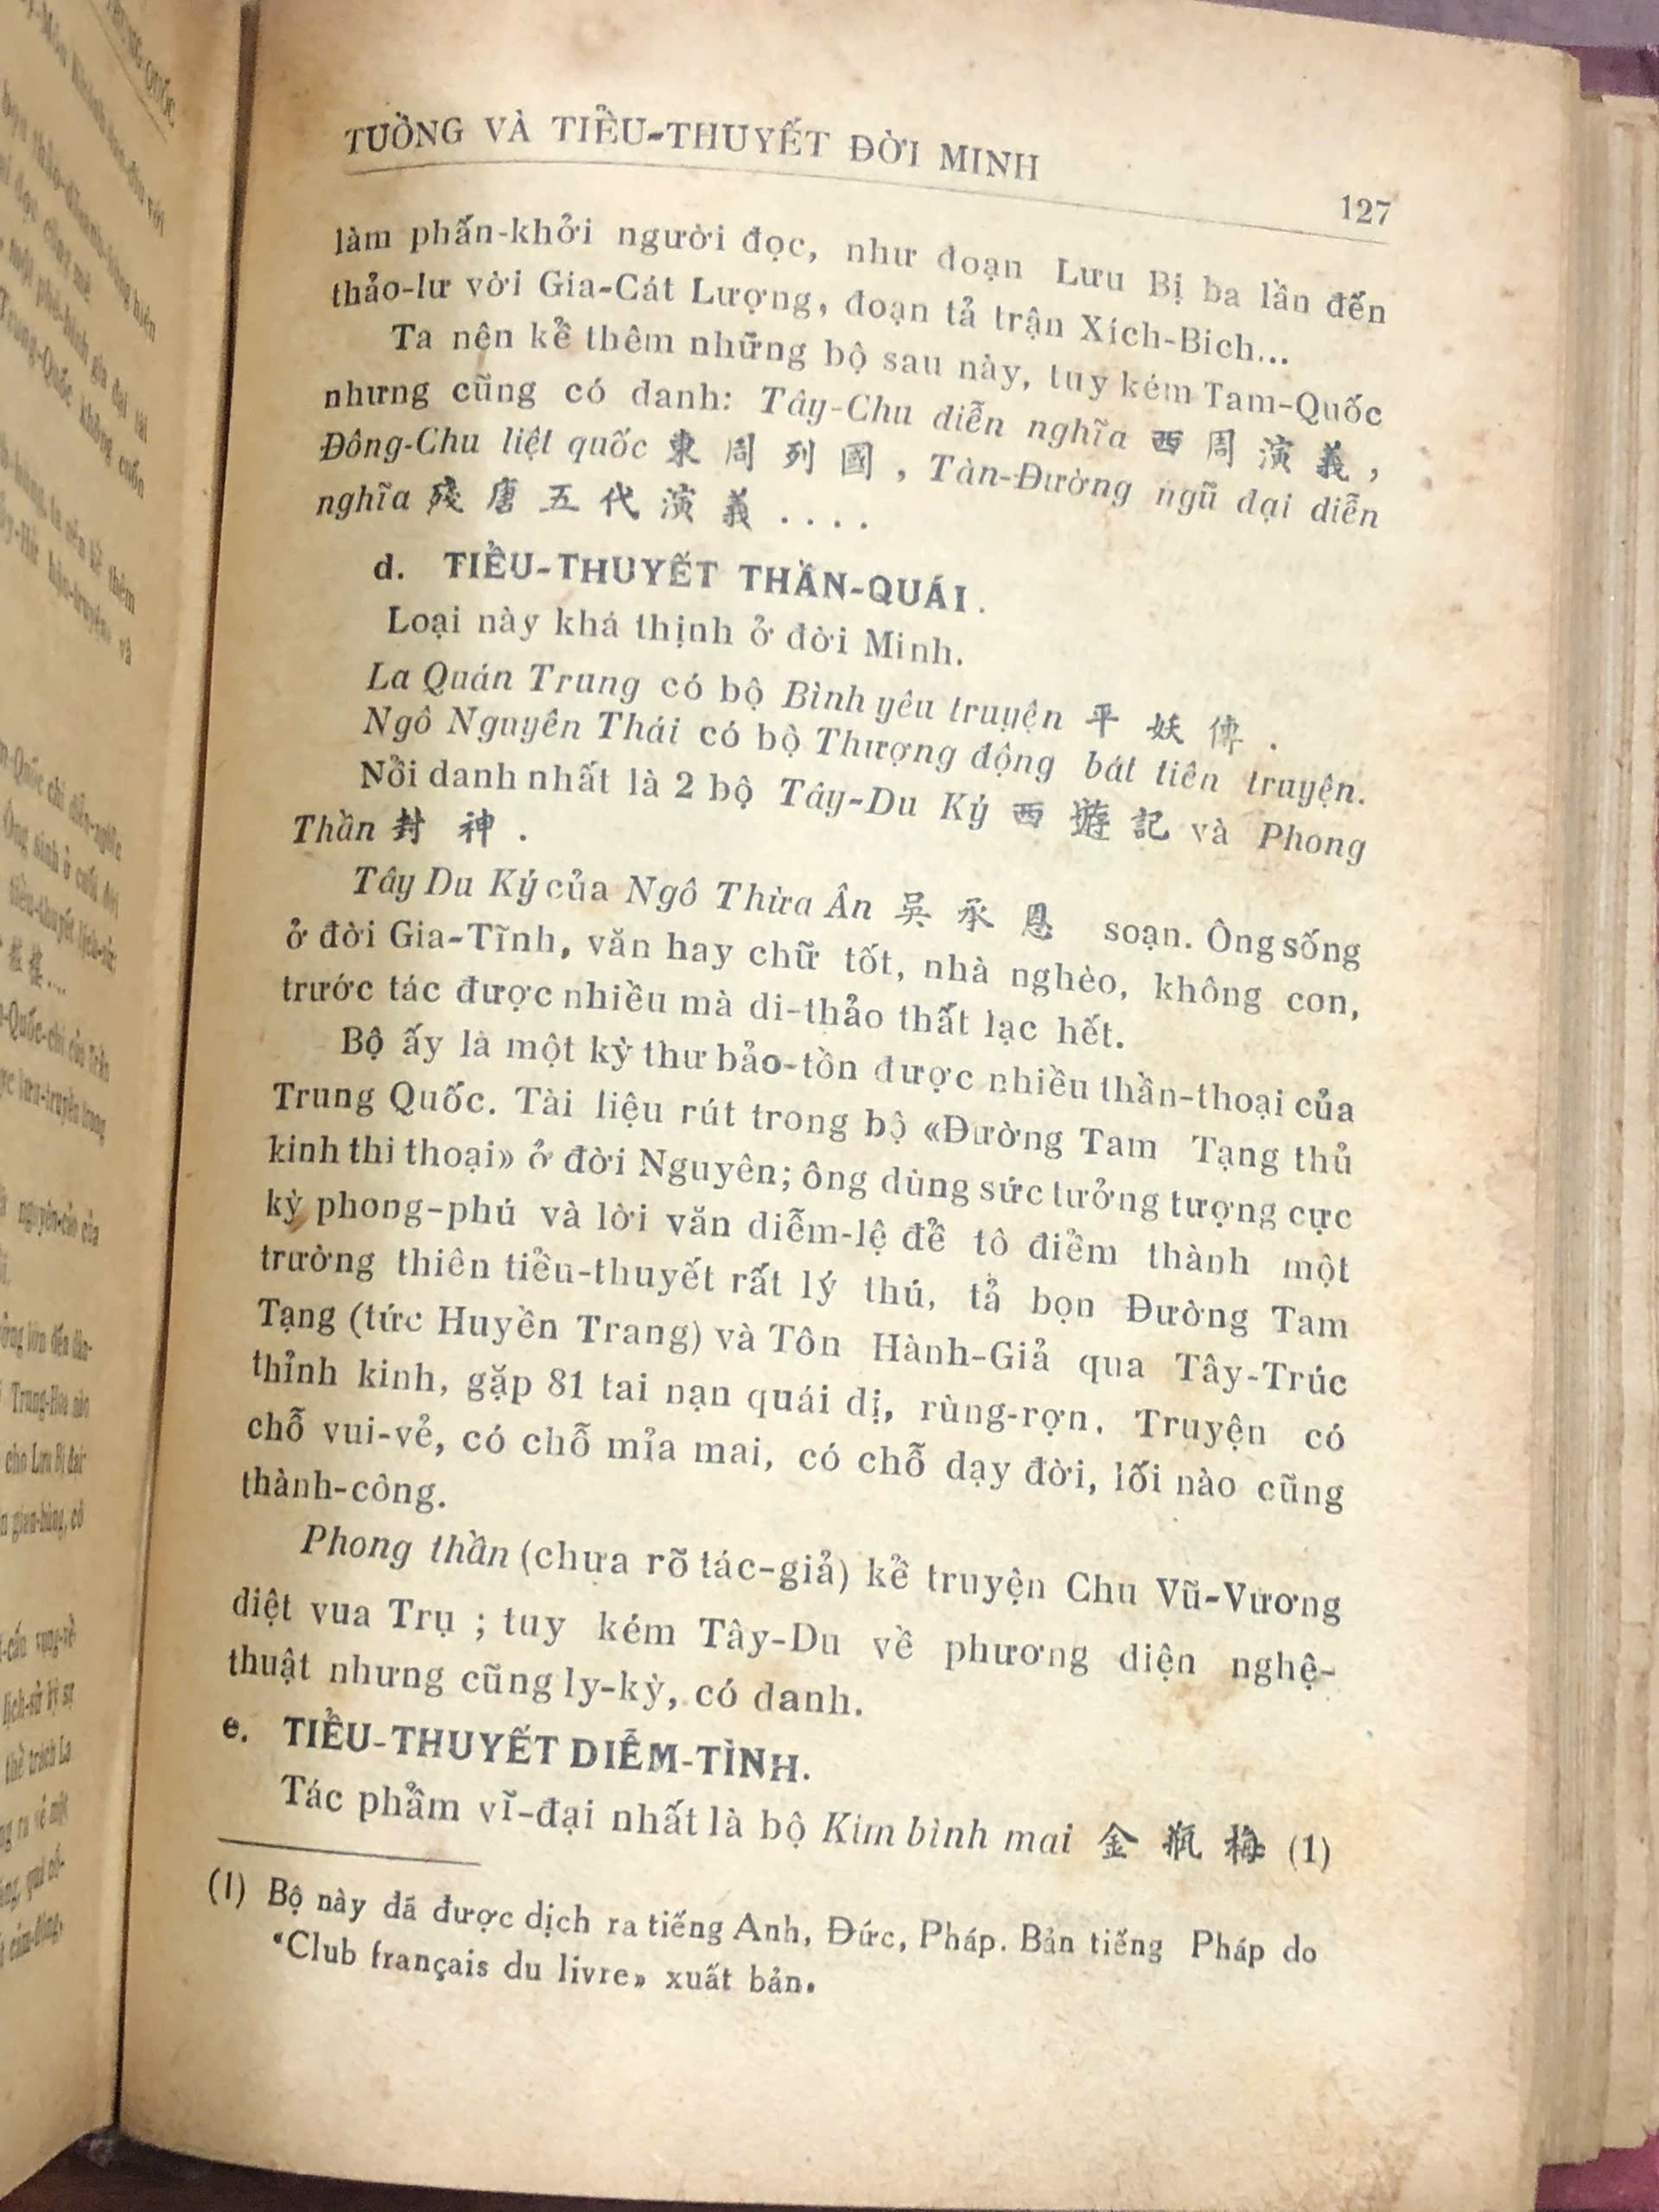 TUỒNG VÀ TIỂU-THUYẾT ĐỜI MINH
127
làm phấn-khởi người đọc, như đoạn Lưu Bị ba lần đến
thảo-lư vời Gia-Cát Lượng, đoạn tả trận Xích-Bich...
Ta nên kể thêm những bộ sau này, tuy kém Tam-Quốc
nhưng cũng có danh: Tây-Chu diễn nghĩa 西周演義,
Đông-Chu liệt quốc 東周列國, Tàn-Đường ngũ đại diễn
nghĩa 殘唐五代演義....
d. TIỂU-THUYẾT THẦN-QUÁI.
Loại này khá thịnh ở đời Minh.
La Quán Trung có bộ Bình yêu truyện 平妖傳.
Ngô Nguyên Thái có bộ Thượng động bát tiên truyện.
Nổi danh nhất là 2 bộ Tây-Du Ký 西遊記 và Phong
Thần 封神.
Tây Du Ký của Ngô Thừa Ân 吳承恩 soạn. Ông sống
ở đời Gia-Tĩnh, văn hay chữ tốt, nhà nghèo, không con,
trước tác được nhiều mà di-thảo thất lạc hết.
Bộ ấy là một kỳ thư bảo-tồn được nhiều thần-thoại của
Trung Quốc. Tài liệu rút trong bộ «Đường Tam Tạng thủ
kinh thi thoại» ở đời Nguyên; ông dùng sức tưởng tượng cực
kỳ phong-phú và lời văn diễm-lệ để tô điểm thành một
trường thiên tiểu-thuyết rất lý thú, tả bọn Đường Tam
Tạng (tức Huyền Trang) và Tôn Hành-Giả qua Tây-Trúc
thỉnh kinh, gặp 81 tai nạn quái dị, rùng-rợn. Truyện có
chỗ vui-vẻ, có chỗ mỉa mai, có chỗ dạy đời, lối nào cũng
thành-công.
Phong thần (chưa rõ tác-giả) kể truyện Chu Vũ-Vương
diệt vua Trụ ; tuy kém Tây-Du về phương diện nghệ-
thuật nhưng cũng ly-kỳ, có danh.
e. TIỂU-THUYẾT DIỄM-TÌNH.
Tác phẩm vĩ-đại nhất là bộ Kim bình mai 金瓶梅 (1)
(1) Bộ này đã được dịch ra tiếng Anh, Đức, Pháp. Bản tiếng Pháp do
«Club français du livre» xuất bản.